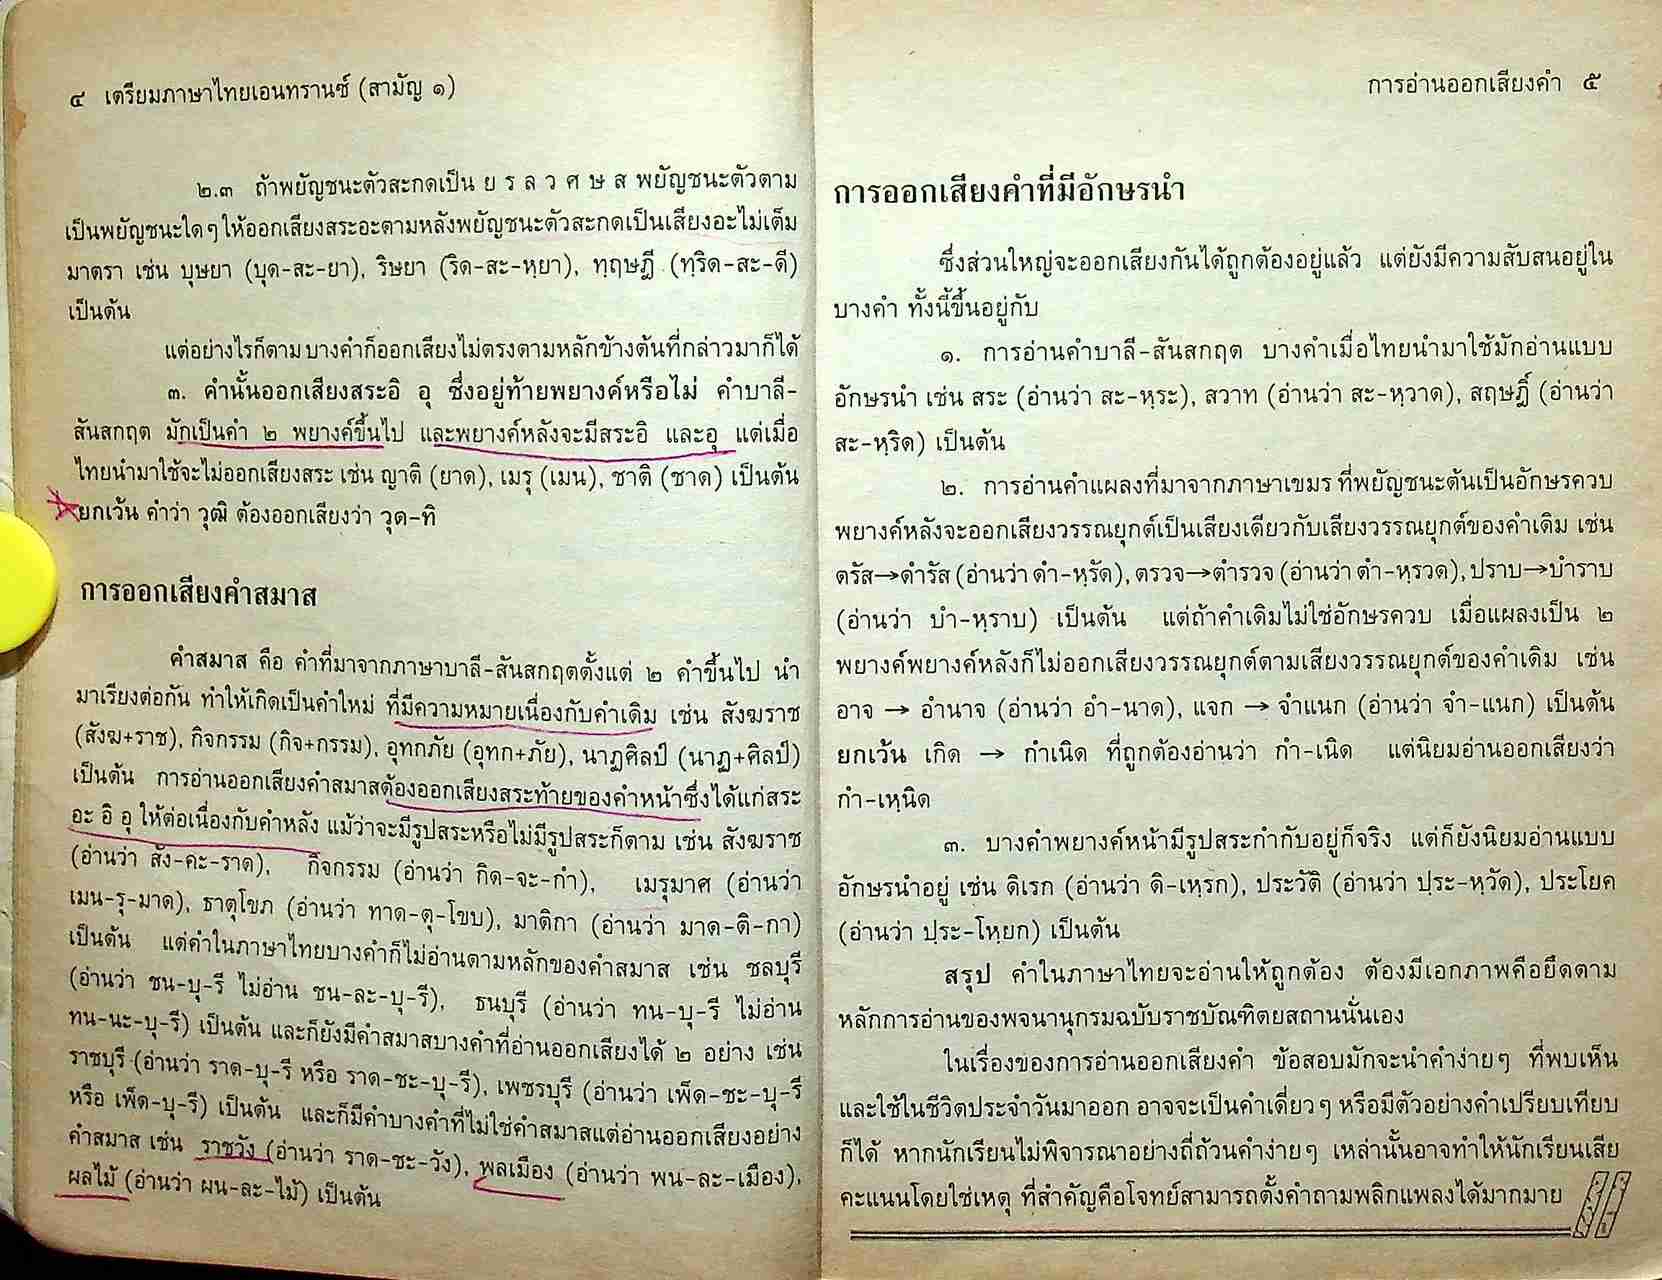 ๔ เตรียมภาษาไทยเอนทรานซ์ (สามัญ ๑)
๒.๓ ถ้าพยัญชนะตัวสะกดเป็น ย ร ล ว ศ ษ ส พยัญชนะตัวตาม
เป็นพยัญชนะใดๆ ให้ออกเสียงสระอะตามหลังพยัญชนะตัวสะกดเป็นเสียงอะไม่เต็ม
มาตรา เช่น บุษยา (บุด-สะ-ยา), ริษยา (ริด-สะ-หฺยา), ทฤษฎี (ทฺริด-สะ-ดี)
เป็นต้น
แต่อย่างไรก็ตาม บางคำก็ออกเสียงไม่ตรงตามหลักข้างต้นที่กล่าวมาก็ได้
๓. คำนั้นออกเสียงสระอิ อุ ซึ่งอยู่ท้ายพยางค์หรือไม่ คำบาลี-
สันสกฤต มักเป็นคำ ๒ พยางค์ขึ้นไป และพยางค์หลังจะมีสระอิ และอุ แต่เมื่อ
ไทยนำมาใช้จะไม่ออกเสียงสระ เช่น ญาติ (ยาด), เมรุ (เมน), ชาติ (ชาด) เป็นต้น
ยกเว้น คำว่า วุฒิ ต้องออกเสียงว่า วุด-ทิ
การออกเสียงคำสมาส
คำสมาส คือ คำที่มาจากภาษาบาลี-สันสกฤตตั้งแต่ ๒ คำขึ้นไป นำ
มาเรียงต่อกัน ทำให้เกิดเป็นคำใหม่ ที่มีความหมายเนื่องกับคำเดิม เช่น สังฆราช
(สังฆ+ราช), กิจกรรม (กิจ+กรรม), อุทกภัย (อุทก+ภัย), นาฏศิลป์ (นาฏ+ศิลป์)
เป็นต้น การอ่านออกเสียงคำสมาสต้องออกเสียงสระท้ายของคำหน้าซึ่งได้แก่สระ
อะ อิ อุ ให้ต่อเนื่องกับคำหลัง แม้ว่าจะมีรูปสระหรือไม่มีรูปสระก็ตาม เช่น สังฆราช
(อ่านว่า สัง-คะ-ราด), กิจกรรม (อ่านว่า กิด-จะ-กำ), เมรุมาศ (อ่านว่า
เมน-รุ-มาด), ธาตุโขภ (อ่านว่า ทาด-ตุ-โขบ), มาติกา (อ่านว่า มาด-ติ-กา)
เป็นต้น แต่คำในภาษาไทยบางคำก็ไม่อ่านตามหลักของคำสมาส เช่น ชลบุรี
(อ่านว่า ชน-บุ-รี ไม่อ่าน ชน-ละ-บุ-รี), ธนบุรี (อ่านว่า ทน-บุ-รี ไม่อ่าน
ทน-นะ-บุ-รี) เป็นต้น และก็ยังมีคำสมาสบางคำที่อ่านออกเสียงได้ ๒ อย่าง เช่น
ราชบุรี (อ่านว่า ราด-บุ-รี หรือ ราด-ชะ-บุ-รี), เพชรบุรี (อ่านว่า เพ็ด-ชะ-บุ-รี
หรือ เพ็ด-บุ-รี) เป็นต้น และก็มีคำบางคำที่ไม่ใช่คำสมาสแต่อ่านออกเสียงอย่าง
คำสมาส เช่น ราชวัง (อ่านว่า ราด-ชะ-วัง), พลเมือง (อ่านว่า พน-ละ-เมือง),
ผลไม้ (อ่านว่า ผน-ละ-ไม้) เป็นต้น
การอ่านออกเสียงคำ ๕
การออกเสียงคำที่มีอักษรนำ
ซึ่งส่วนใหญ่จะออกเสียงกันได้ถูกต้องอยู่แล้ว แต่ยังมีความสับสนอยู่ใน
บางคำ ทั้งนี้ขึ้นอยู่กับ
๑. การอ่านคำบาลี-สันสกฤต บางคำเมื่อไทยนำมาใช้มักอ่านแบบ
อักษรนำ เช่น สระ (อ่านว่า สะ-หฺระ), สวาท (อ่านว่า สะ-หฺวาด), สฤษฎิ์ (อ่านว่า
สะ-หฺริด) เป็นต้น
๒. การอ่านคำแผลงที่มาจากภาษาเขมร ที่พยัญชนะต้นเป็นอักษรควบ
พยางค์หลังจะออกเสียงวรรณยุกต์เป็นเสียงเดียวกับเสียงวรรณยุกต์ของคำเดิม เช่น
ตรัส→ดำรัส (อ่านว่า ดำ-หฺรัด), ตรวจ→ตำรวจ (อ่านว่า ตำ-หฺรวด), ปราบ→บำราบ
(อ่านว่า บำ-หฺราบ) เป็นต้น แต่ถ้าคำเดิมไม่ใช่อักษรควบ เมื่อแผลงเป็น ๒
พยางค์พยางค์หลังก็ไม่ออกเสียงวรรณยุกต์ตามเสียงวรรณยุกต์ของคำเดิม เช่น
อาจ → อำนาจ (อ่านว่า อำ-นาด), แจก → จำแนก (อ่านว่า จำ-แนก) เป็นต้น
ยกเว้น เกิด → กำเนิด ที่ถูกต้องอ่านว่า กำ-เนิด แต่นิยมอ่านออกเสียงว่า
กำ-เหฺนิด
๓. บางคำพยางค์หน้ามีรูปสระกำกับอยู่ก็จริง แต่ก็ยังนิยมอ่านแบบ
อักษรนำอยู่ เช่น ดิเรก (อ่านว่า ดิ-เหฺรก), ประวัติ (อ่านว่า ปฺระ-หฺวัด), ประโยค
(อ่านว่า ปฺระ-โหฺยก) เป็นต้น
สรุป คำในภาษาไทยจะอ่านให้ถูกต้อง ต้องมีเอกภาพคือยึดตาม
หลักการอ่านของพจนานุกรมฉบับราชบัณฑิตยสถานนั่นเอง
ในเรื่องของการอ่านออกเสียงคำ ข้อสอบมักจะนำคำง่ายๆ ที่พบเห็น
และใช้ในชีวิตประจำวันมาออก อาจจะเป็นคำเดี่ยวๆ หรือมีตัวอย่างคำเปรียบเทียบ
ก็ได้ หากนักเรียนไม่พิจารณาอย่างถี่ถ้วนคำง่ายๆ เหล่านั้นอาจทำให้นักเรียนเสีย
คะแนนโดยใช่เหตุ ที่สำคัญคือโจทย์สามารถตั้งคำถามพลิกแพลงได้มากมาย